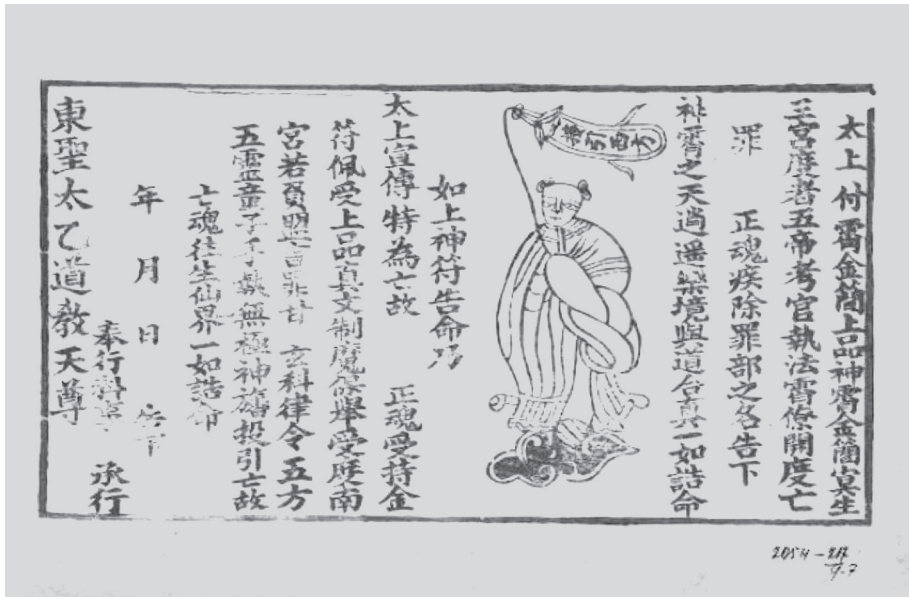 太上付霄金蕳上品神霄金蕳宜生
三宮度者五帝考官執法霄僚開度亡
罪 正魂疾除罪部之名告下
神霄之天逍遥樂境與道合真一如誥命
接引西方
如上神符告命乃
太上宣傳特為亡故 正魂受持金
符佩受上品真文制魔保舉受度南
宮若負盟言罪甘 玄科律令五方
五靈童子手執無極神旛投引亡故
亡魂往生仙界一如誥命
年 月 日
奉行科 承行
東聖太乙道教天尊
2054